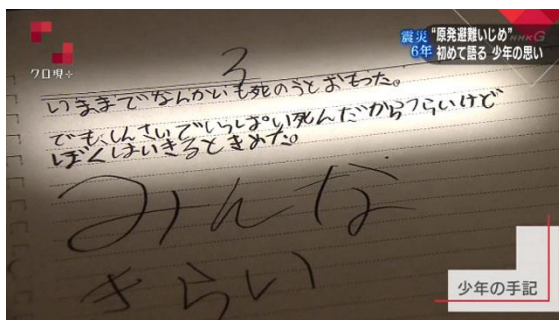 震災 "原発避難いじめ" NHK G
6年 初めて語る 少年の思い
クロ現+
3
いままでなんかいも死のうとおもった。
でも、しんさいでいっぱい死んだからつらいけど
ぼくはいきるときめた。
みんな
きらい
少年の手記